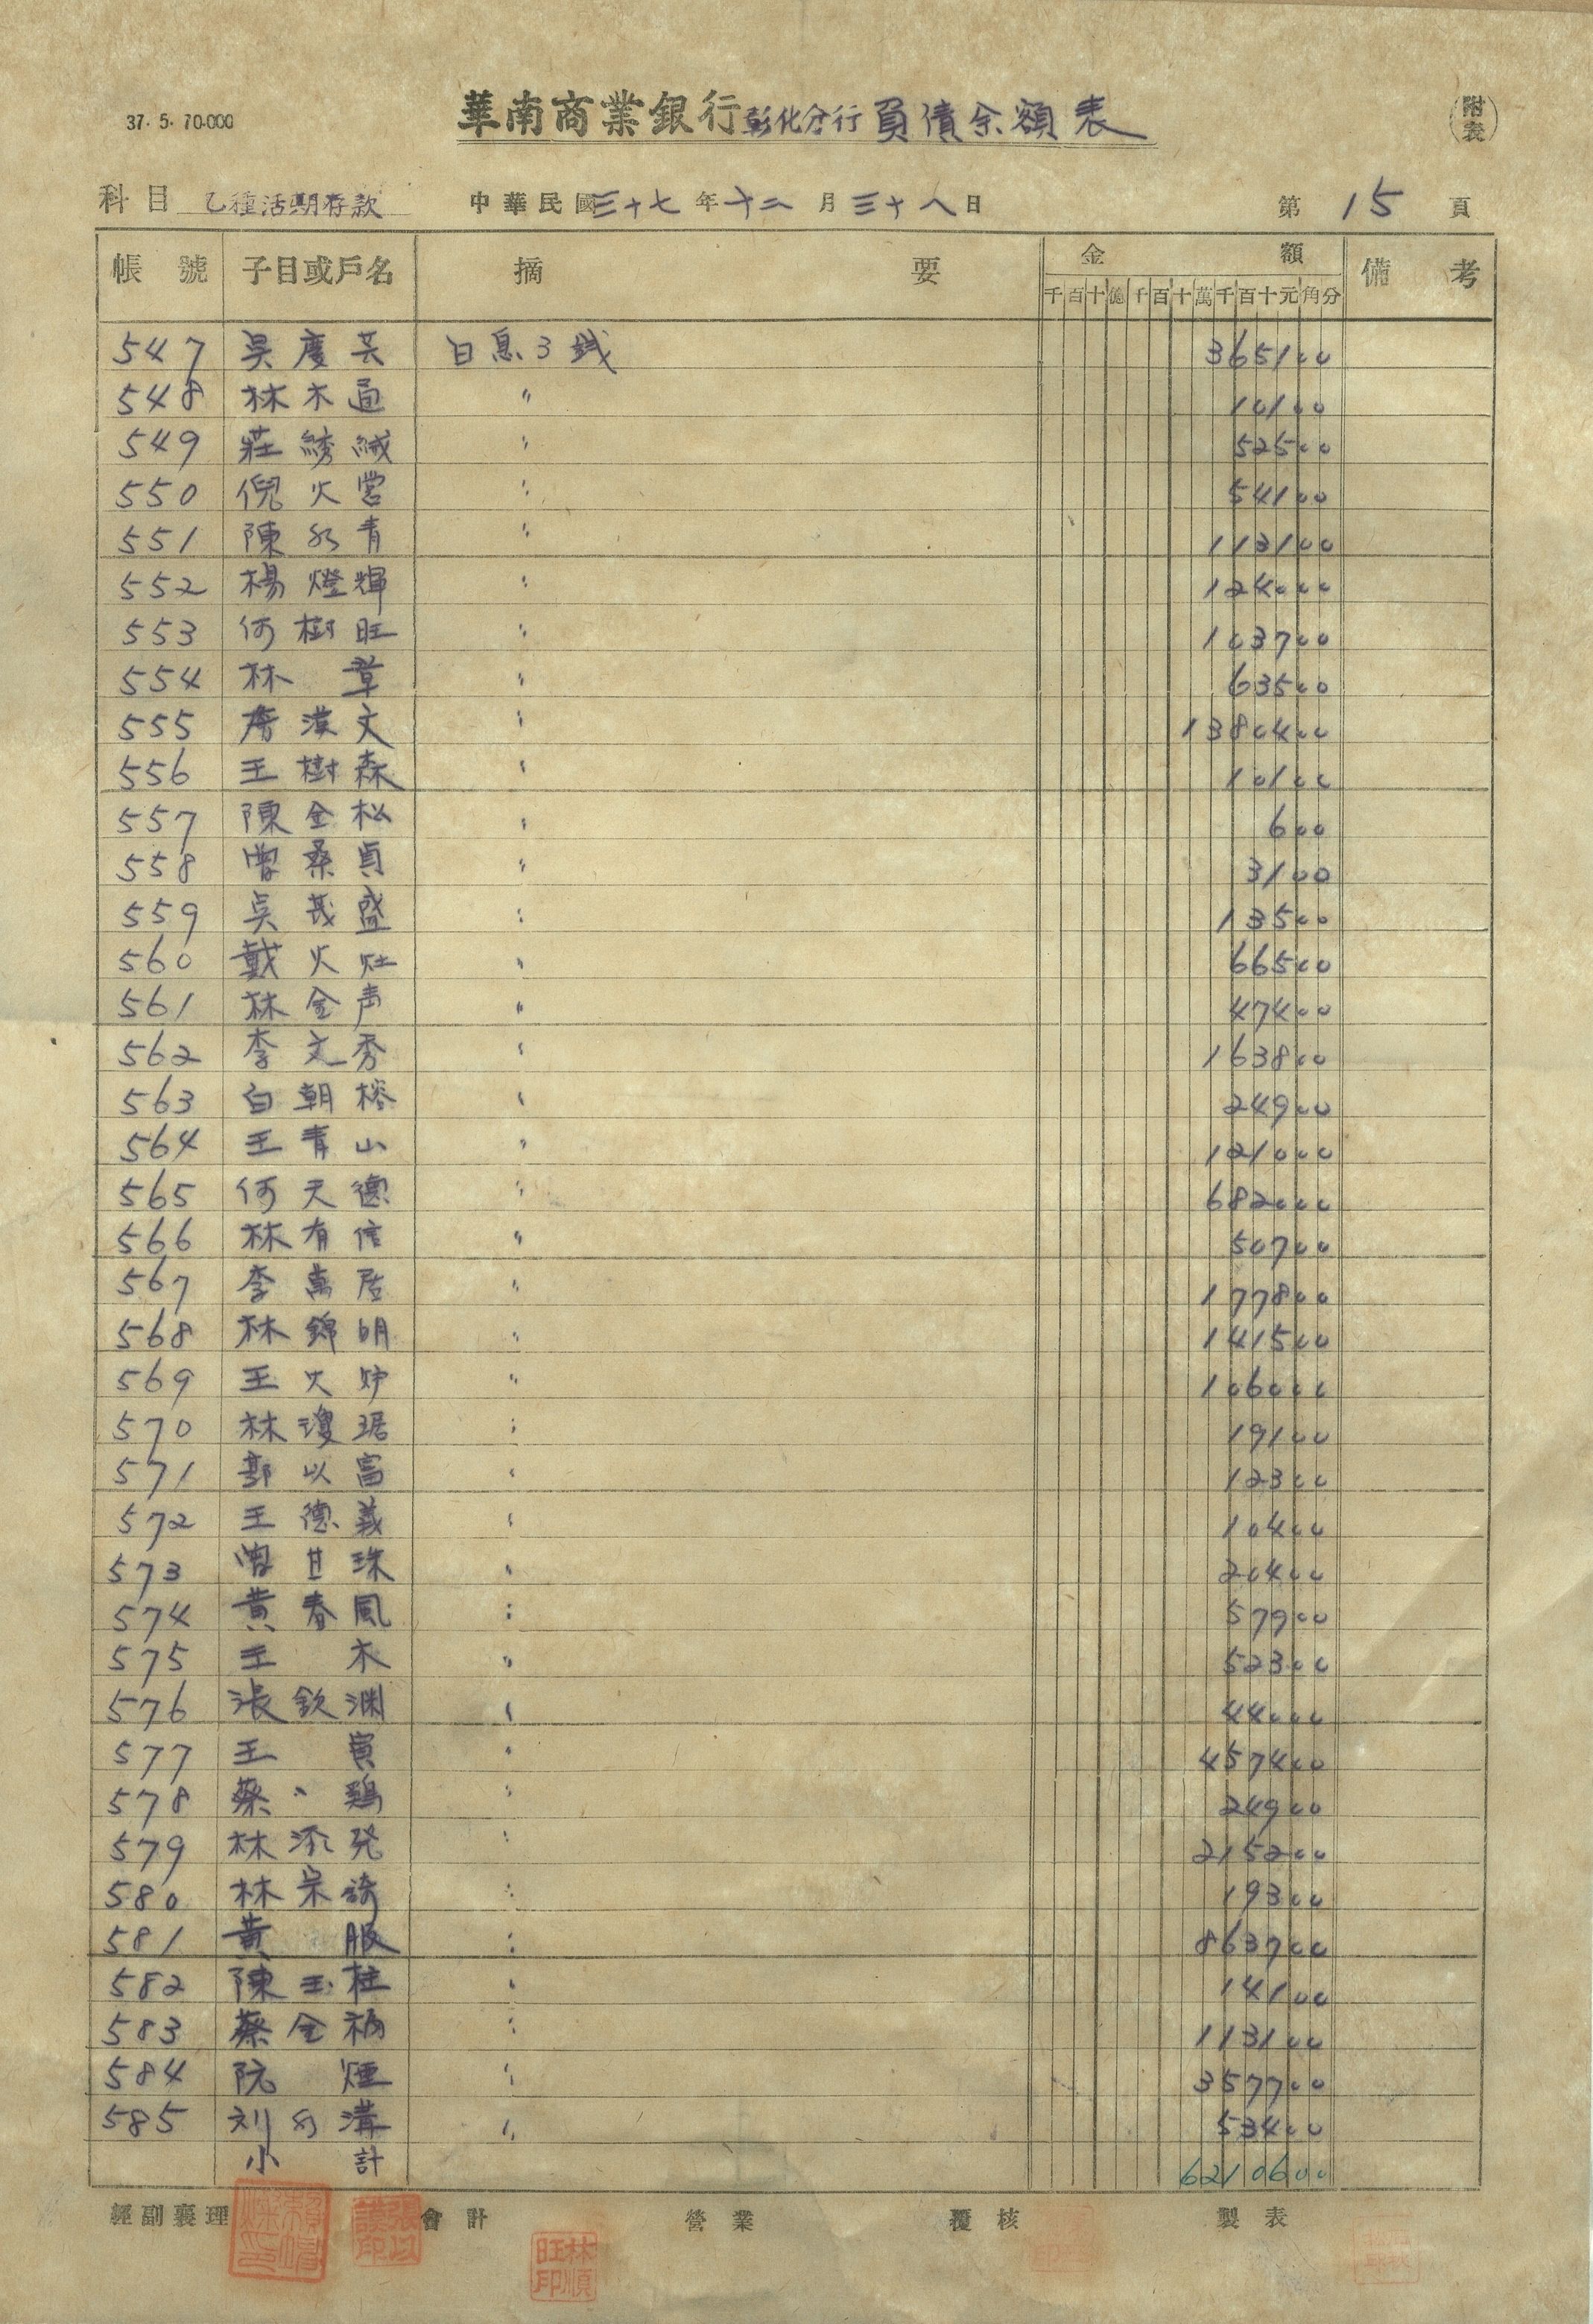 37. 5. 70.000
華南商業銀行彰化分行負債余額表
附表
科目 乙種活期存款 中華民國三十七年十二月三十八日 第15頁
帳號 子目或戶名 摘要 金額 備考
千百十億千百十萬千百十元角分
547 吳慶芸 日息3錢 365100
548 林木通 〃 10100
549 莊綉絨 〃 52500
550 倪火営 〃 54100
551 陳水青 〃 113100
552 楊燈輝 〃 124000
553 何樹旺 〃 103700
554 林草 〃 63500
555 唐漢文 〃 1380400
556 王樹森 〃 10100
557 陳金松 〃 600
558 曾桑貞 〃 3100
559 吳茂盛 〃 13500
560 戴火灶 〃 66500
561 林金声 〃 47400
562 李文秀 〃 163800
563 白朝榕 〃 24900
564 王青山 〃 121000
565 何天德 〃 682000
566 林有信 〃 50700
567 李萬居 〃 177800
568 林錦明 〃 141500
569 王火炉 〃 106000
570 林瓊琚 〃 19100
571 郭以富 〃 12300
572 王德義 〃 10400
573 曾甘珠 〃 20400
574 黃春風 〃 57900
575 王木 〃 52300
576 張欽渊 〃 44000
577 王寅 〃 457400
578 蔡 鶏 〃 24900
579 林添発 〃 215200
580 林宗 〃 19300
581 黃服 〃 863700
582 陳玉柱 〃 14100
583 蔡金 〃 113100
584 阮煙 〃 357700
585 刘水溝 〃 53400
小計 6210600
經副襄理 會計 營業 覆核 製表
林順旺印